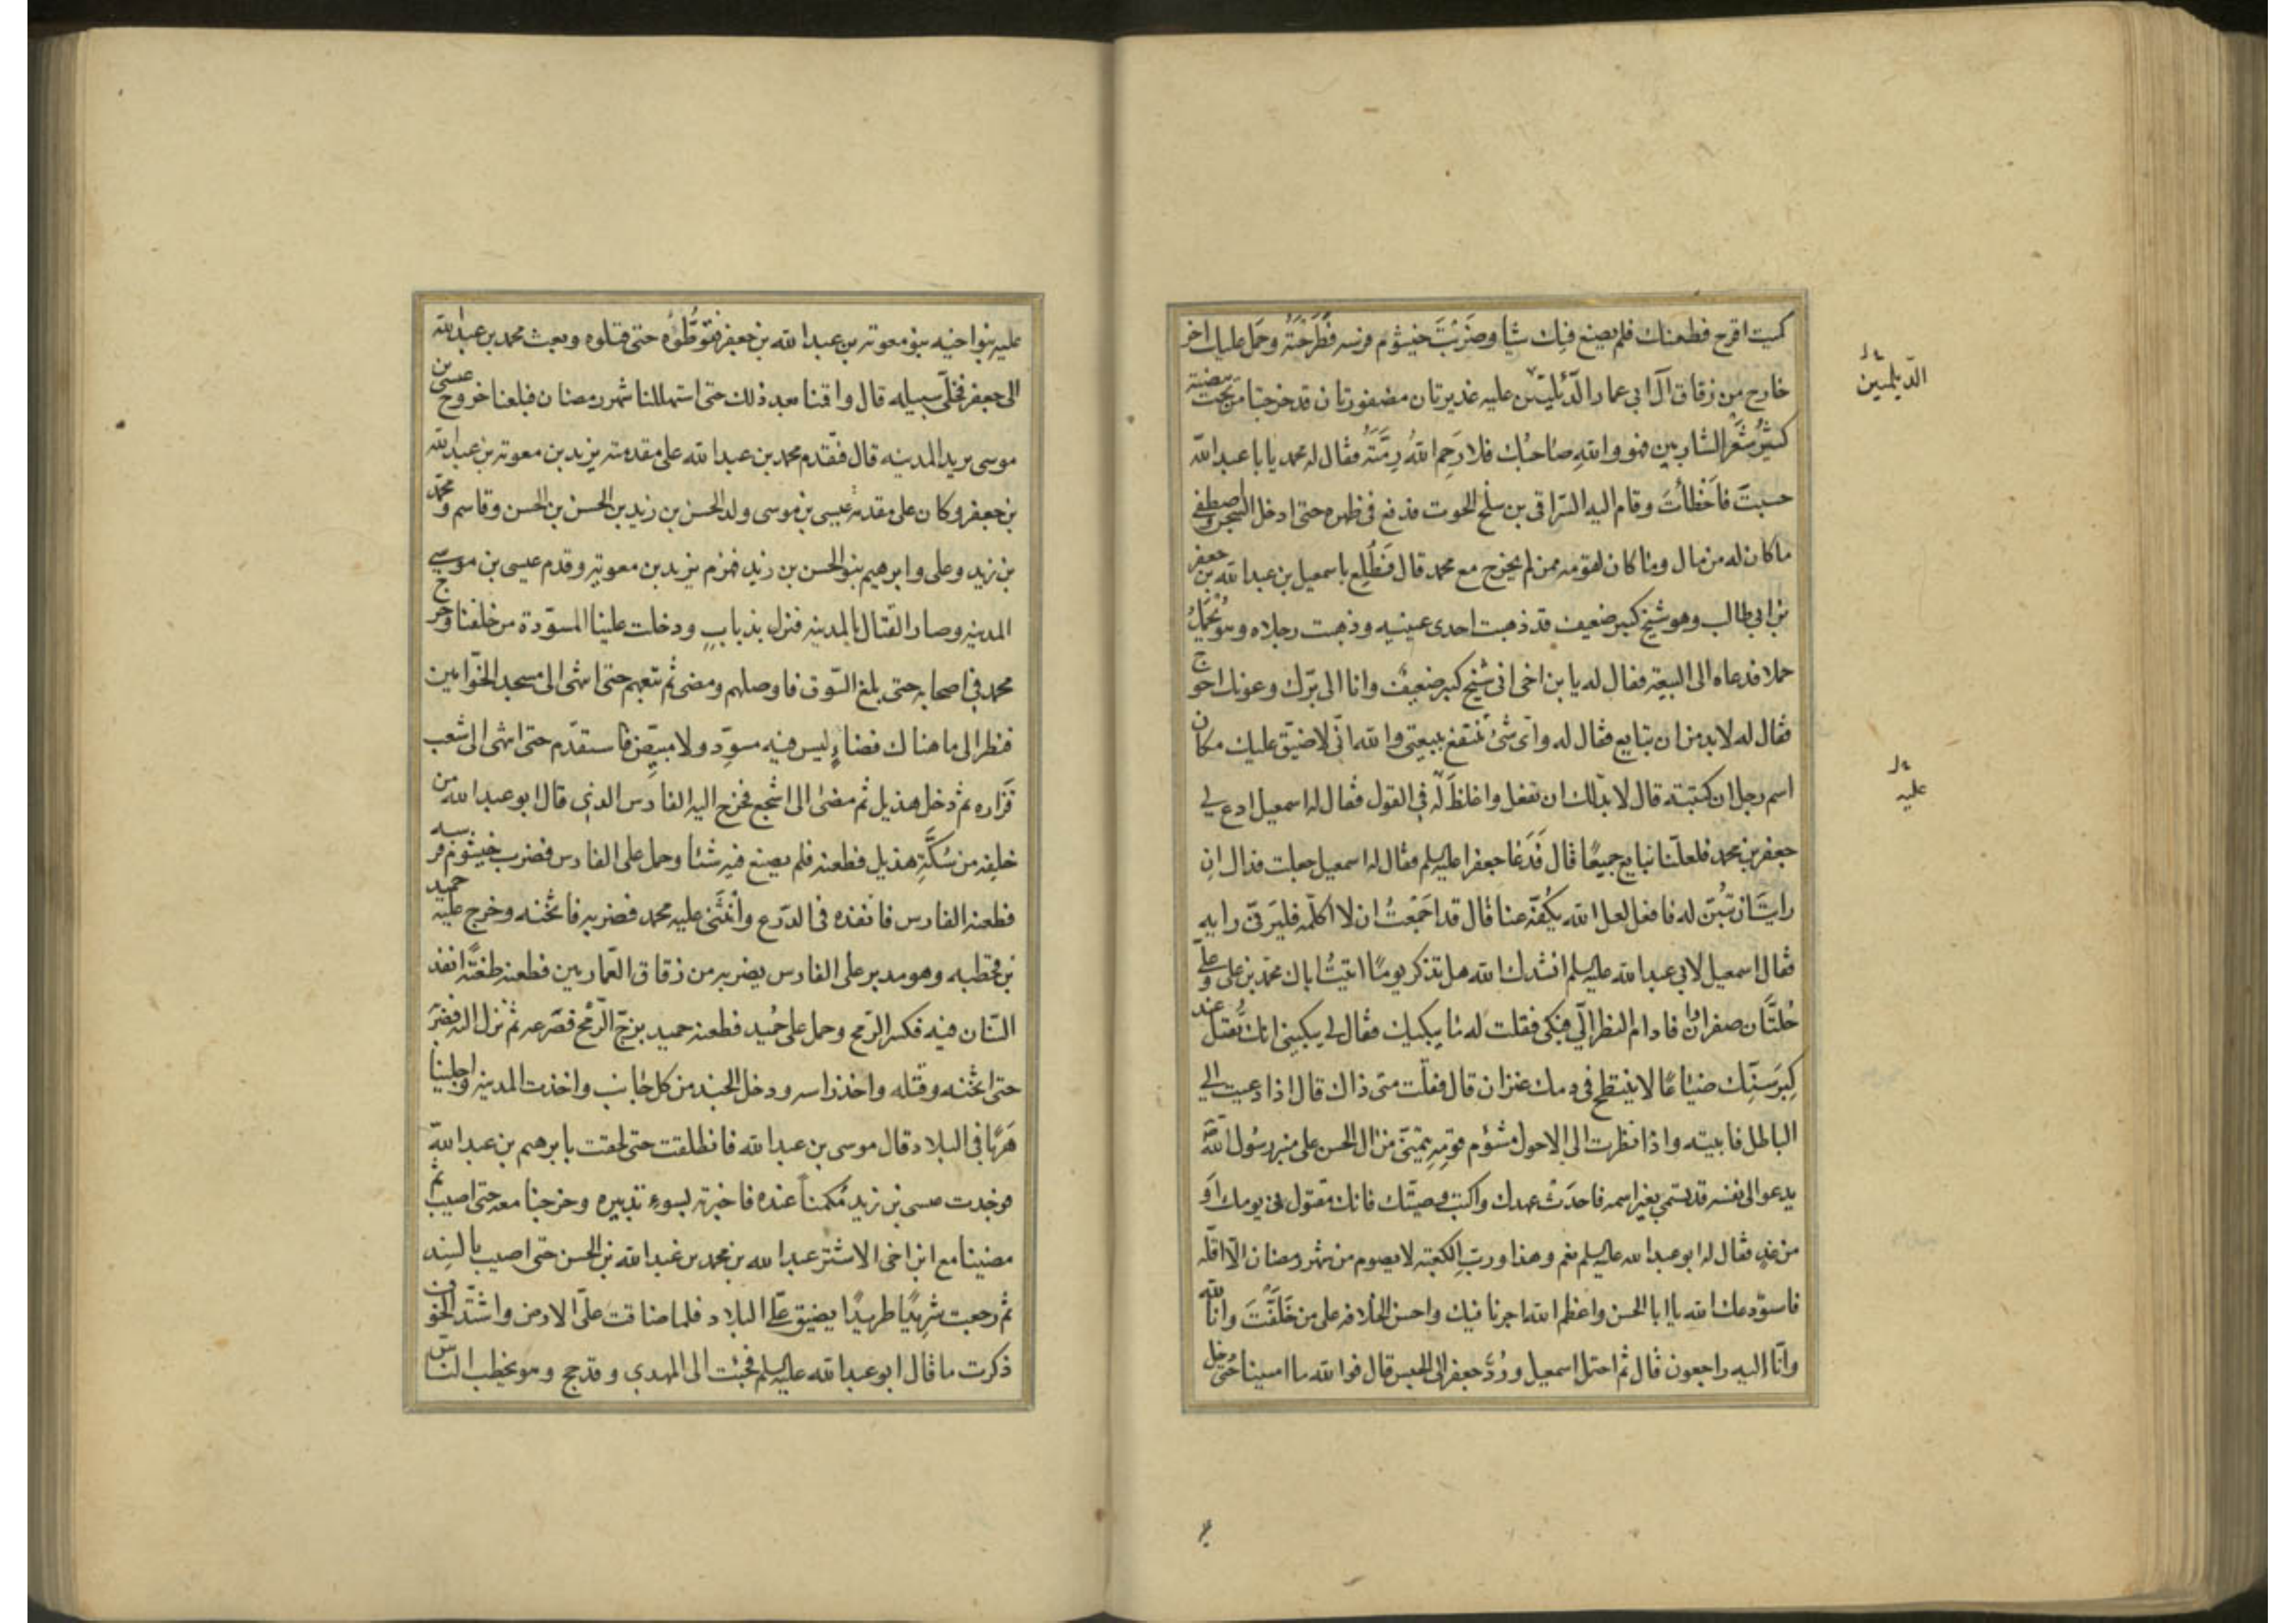 كميت اقرح فطعنك فلم يصنع فيك شيا وضَرَبْتَ خيشوم فرسه فَطَرَحْتَهُ وحَمَل عليك اخر
خارج من زقاق آل ابي عمار الدّئليّين عليه غديرتان مضفورتان قد خرجتا من تحت بيضته
كثيرُ شَعْرِ الشاربين فهو واللهِ صاحبك فلا رَحِمَ اللهُ رِمَّتَهُ فقال له محمد يا با عبد الله
حسبتَ فاَخْطأتَ وقام اليه السّراقي بن سلْح الحوت فدفع في ظهره حتى ادخل السجن واصطفى
ما كان له من مال وما كان لقومه ممن لم يخرج مع محمد قال فَطُلِعَ باسمعيل بن عبد الله بن جعفر
بن ابي طالب وهو شيخ كبير ضعيف قد ذهبت احدى عينيه وذهبت رجلاه وهو يُحْمَلُ
حملا فدعاه الى البيعة فقال له يا بن اخي اني شيخ كبير ضعيف وانا الى برّك وعونك احوج
فقال له لا بد من ان تبايع فقال له واَى شئ تنتفع ببيعتي والله انّى لاضيّق عليك مكان
اسم رجل ان كتبته قال لا بدّ لك ان تفعل واغلظَ لَهُ في القول فقال له اسمعيل ادع لي
جعفر بن محمد فلعلّنا نبايع جميعًا قال فَدَعَا جعفرا عليه السلم فقال له اسمعيل جعلت فداك ان
رايتَ ان تبيّن له فافعل لعل الله يكُفّه عنا قال قد اجمَعْتُ ان لا اكلّمه فليَرَ فيّ رايه
فقال اسمعيل لابي عبد الله عليه السلم انشدك الله هل تذكر يومًا اتيتُ اباك محمّد بن على وعليّ
حُلّتان صفراوان فادام النظر الىّ فبكى فقلت له ما يبكيك فقال لى يبكيني انك تُقتل عند
كِبَرِ سِنِّك ضياعًا لا ينتطح فى دمك عنزان قال فقلت متى ذاك قال اذا دعيت الى
الباطل فابيته واذا نظرت الى الاحول مشؤم قومِهِ يَنتمي من ال الحسن على منبر رسُول الله
يدعو الى نفسه قد تسمّى بغير اسمه فاحدَث عهدك واكتب وصيّتك فانك مقتول فى يومك اَوْ
من غدٍ فقال له ابو عبد الله عليه السلم نعم وهذا وربِّ الكعبة لا يصوم من شهر رمضان الّا اقلّه
فاستودعك الله يا ابا الحسن واعظم الله اجرنا فيك واحسن الخلافة على من خَلَّفْتَ وانّا لله
وانّا اليه راجعون قال ثم احتمل اسمعيل ورُدَّ جعفر الى الحبس قال فوالله ما امسينا حتى دخل
الدّيلميين
عليه
عليه بنوا اخيه بنو معوية بن عبد الله بن جعفر فتَوَطّئوُه حتى قتلوه وبعث محمد بن عبد الله
الى جعفر فخلّى سبيله قال واقمنا بعد ذلك حتى استهللنا شهر رمضان فبلغنا خروج عيسى بن
موسى يريد المدينه قال فتقدم محمد بن عبد الله على مقدمته يزيد بن معوية بن عبد الله
بن جعفر وكان على مقدمة عيسى بن موسى ولد الحسن بن زيد بن الحسن بن الحسن وقاسم ومحمّد
بن زيد وعلى وابرهيم بنو الحسن بن زيد فهزم يزيد بن معوية وقدم عيسى بن موسى
المدينة وصار القتال بالمدينة فنزل بذبابٍ ودخلت علينا المسوّدة من خلفنا وخرج
محمد في اصحابه حتى بلغ السّوق فاوصلهم ومضى ثم تبعهم حتى انتهى الى مسجد الخوّامين
فنظر الى ما هناك فضاءٍ ليس فيه مسوِّد ولا مبيّض فاستقدّم حتى انتهى الى شعب
فَزَاره ثم دخل هذيل ثم مضى الى اشجع فخرج اليه الفارس الذي قال ابو عبد الله من
خلفه من سُكَّةِ هذيل فطعنه فلم يصنع فيه شئا وحمل على الفارس فضرب خيشوم فرسه
فطعنه الفارس فانفذه فى الدرع وانْثَنى عليه محمد فضربه فاثخنه وخرج عليه حميد
بن قحطبه وهو مدبر على الفارس يضربه من زقاق العّمارين فطعنه طعنةً انفذ
السّنان فيه فكسر الرّمح وحمل على حُميد فطعنه حميد بزجّ الرّمح فصّرعه ثم نزل اليه فضربه
حتى اثخنه وقتله واخذ راسه ودخل الجند من كل جانب واخذت المدينه واجلينا
هَرَبًا في البلاد قال موسى بن عبد الله فانطلقت حتى لحقت بابرهيم بن عبد الله
فوجدت عيسى بن زيد مُكمناً عنده فاخبرته بسوءِ تدبيره وخرجنا معه حتى اصيب ثم
مضينا مع ابن اخى الاشتر عبد الله بن محمد بن عبد الله بن الحسن حتى اصيب بالسِند
ثم رجعت شريدًا طريدًا يضيق علّى البلاد فلما ضاقت علىّ الارض واشتّد الخوف
ذكرت ما قال ابو عبد الله عليه السلم فجئت الى المهدى وقد حج وهو يخطب النّاس